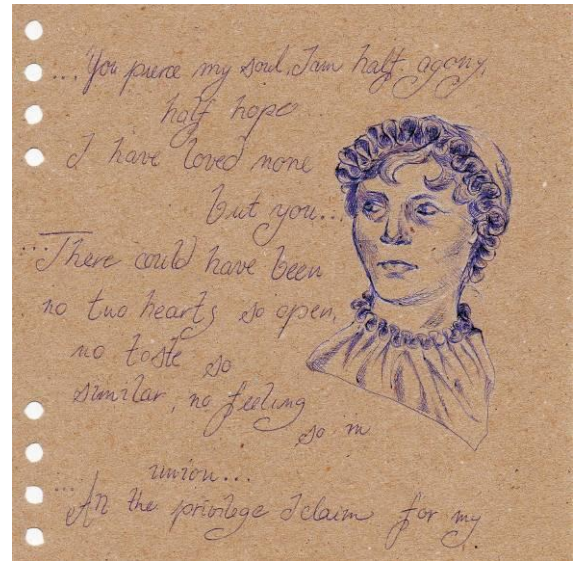 ...You pierce my soul. I am half agony,
half hope
I have loved none
but you...
...There could have been
no two hearts so open,
no taste so
similar, no feeling
so in
union...
...All the privilege I claim for my